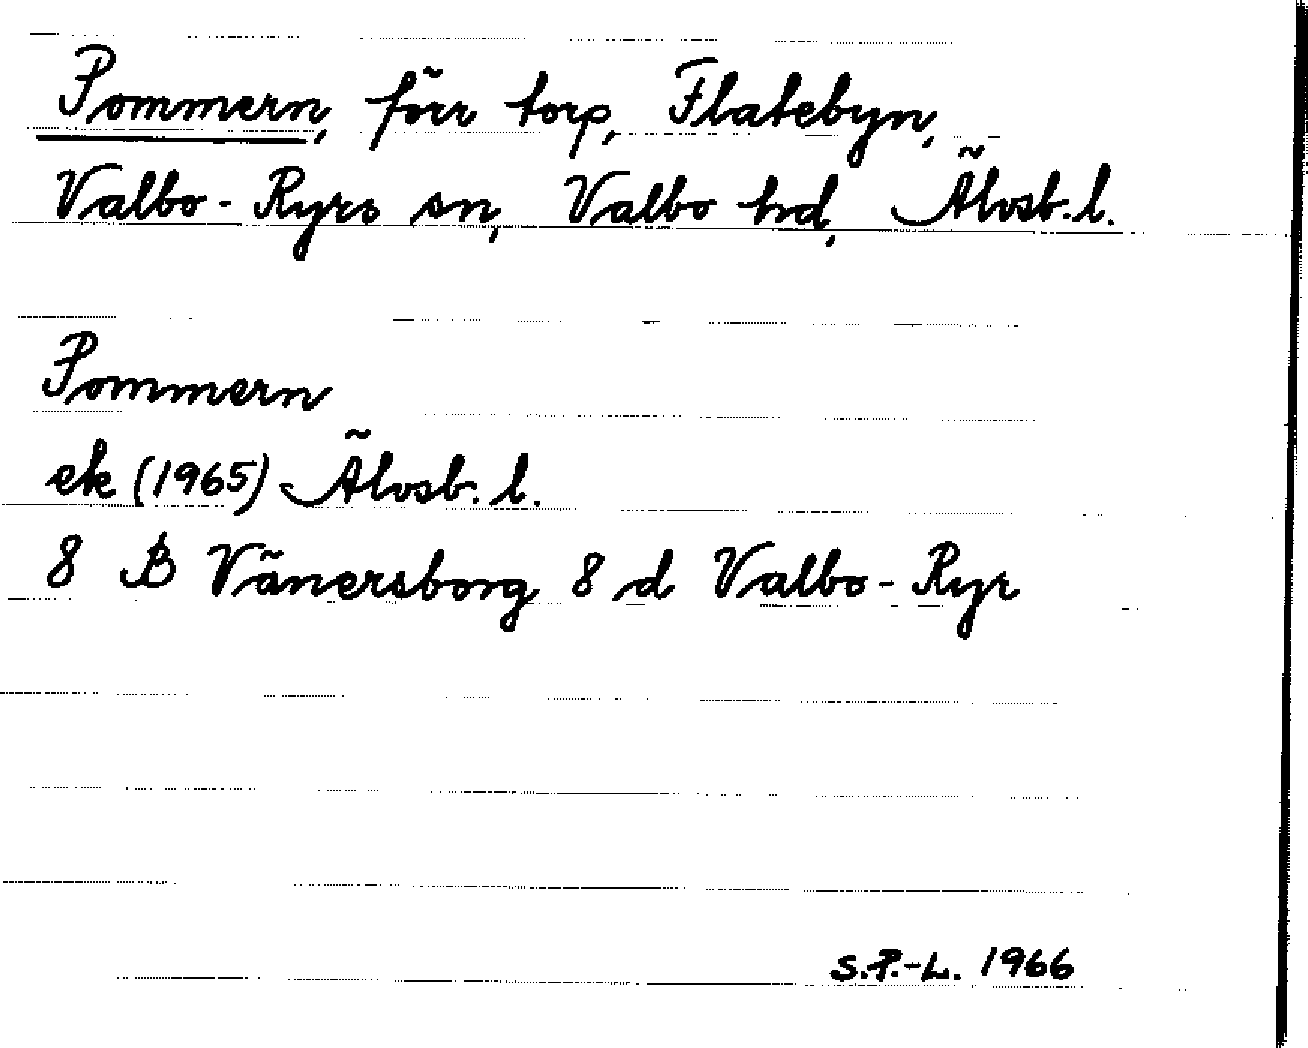 Pommern, förr torp, Flatebyn,
Valbo-Ryrs sn, Valbo hd, Älvsb. l.
Pommern
ek (1965) Älvsb. l.
8 B Vänersborg 8 d Valbo-Ryr
S.P.-L. 1966